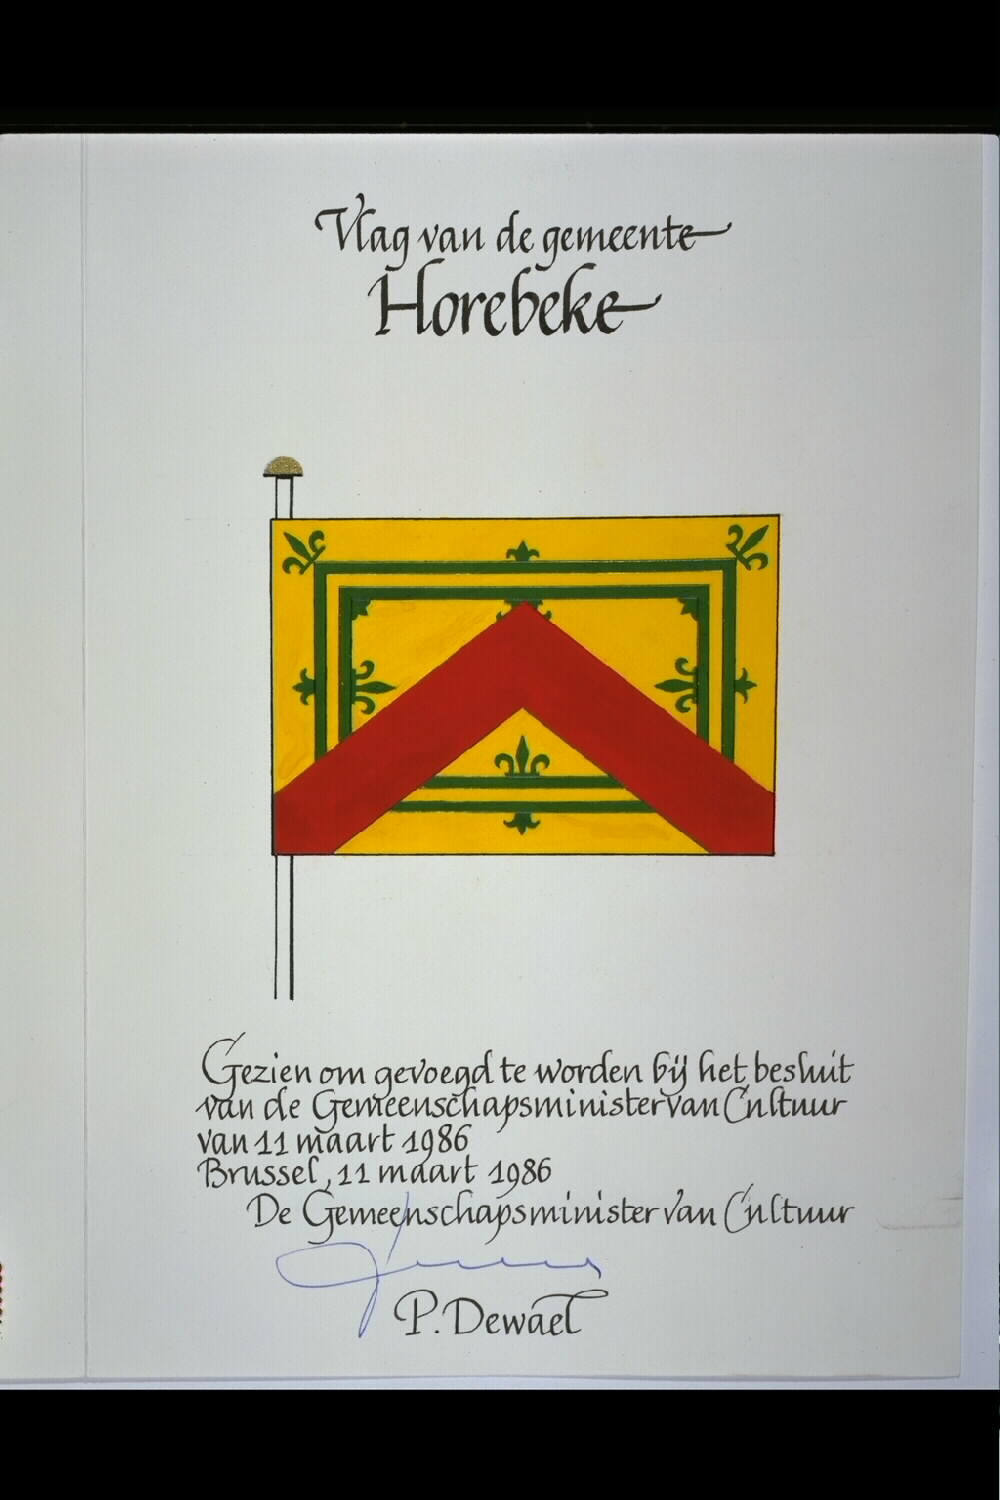 Vlag van de gemeente
Horebeke
Gezien om gevoegd te worden bij het besluit
van de Gemeenschapsminister van Cultuur
van 11 maart 1986
Brussel, 11 maart 1986
De Gemeenschapsminister van Cultuur
P. Dewael